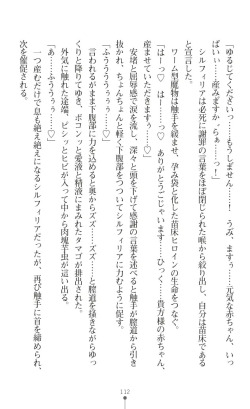 「ゆるしてください…っ！もうしません…っ、うみ、ますぅ、い、いっ
ぱいぃ……産みますか、らぁ……っ！　ぅぅ……っ、元気な赤ちゃん、っ」
　シルフィリアは必死に謝罪の言葉を喉から絞り出し、自分は苗床である
と宣言した。
　ワーム型魔物は触手を緩ませ、孕み袋と化した苗床ヒロインの生命をつなぐ。
「はーっ♡　はーっ♡　ありがとうございます……ひっく……貴方様の赤ちゃん、
産ませていただきますぅ……♡」
　安堵と屈辱感で涙を流し、深々と頭を下げて感謝の言葉を述べると触手が膣道から引き
抜かれ、ちょんちょんと軽く下腹部をつついてシルフィリアに力むように促す。
「ふぅううううぅぅ……♡」
　言われるがまま下腹部に力を込めると奥からズズ……ズズ……と膣道を擦りながらゆっ
くりと降りてゆき、ポコンッと愛液と精液にまみれたタマゴが排出された。
　外気に触れた途端、ピシッとヒビが入って中から肉塊芋虫が這い出る。
「あ……ふうぅぅぅぅ……♡」
　一つ産むだけで息も絶え絶えになるシルフィリアだったが、再び触手に首を締められ、
次を催促される。
112